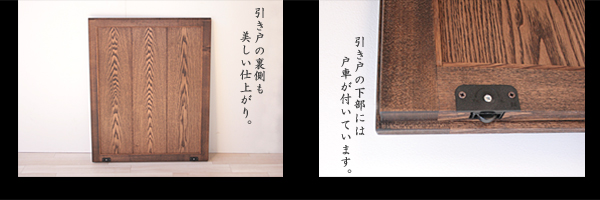 引き戸の裏側も
美しい仕上がり。
引き戸の下部には
戸車が付いています。